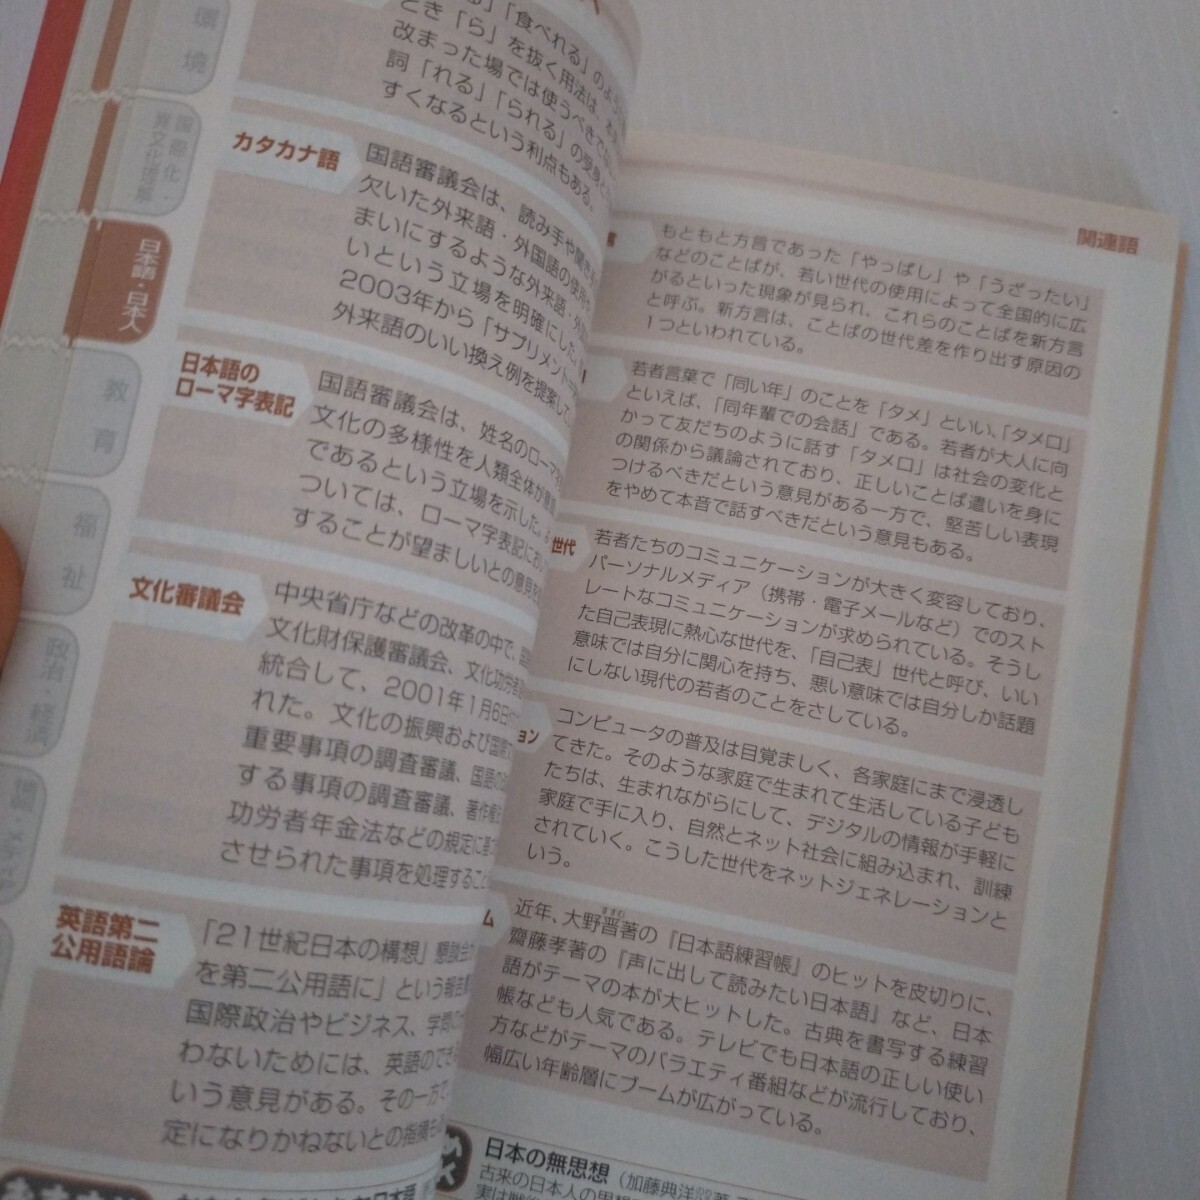 環境
国際化・異文化理解
日本語・日本人
教育
福祉
政治・経済
「食べれる」のよう
とき「ら」を抜く用法は、
改まった場では使うべきでな
詞「れる」「られる」の受身と
すくなるという利点もある。
カタカナ語
国語審議会は、読み手や聞き
欠いた外来語・外国語の使用や
まいにするような外来語・外
いという立場を明確にした。
2003年から「サプリメント→
外来語のいい換え例を提案して
日本語の
ローマ字表記
国語審議会は、姓名のローマ字
文化の多様性を人類全体が意識
であるという立場を示した。
ついては、ローマ字表記にお
することが望ましいとの意見を
文化審議会
中央省庁などの改革の中で、国
文化財保護審議会、文化功労者
統合して、2001年1月6日
れた。文化の振興および国際文
重要事項の調査審議、国語の
する事項の調査審議、著作権法
功労者年金法などの規定に基づ
させられた事項を処理すること
英語第二
公用語論
「21世紀日本の構想」懇談会が
を第二公用語に」という報告書
国際政治やビジネス、学問に
わないためには、英語のでき
いう意見がある。その一方で
定になりかねないとの指摘も
関連語
もともと方言であった「やっぱし」や「うざったい」
などのことばが、若い世代の使用によって全国的に広
がるといった現象が見られ、これらのことばを新方言
と呼ぶ。新方言は、ことばの世代差を作り出す原因の
1つといわれている。
若者言葉で「同い年」のことを「タメ」といい、「タメ口」
といえば、「同年輩での会話」である。若者が大人に向
かって友だちのように話す「タメ口」は社会の変化と
の関係から議論されており、正しいことば遣いを身に
つけるべきだという意見がある一方で、堅苦しい表現
をやめて本音で話すべきだという意見もある。
世代
若者たちのコミュニケーションが大きく変容しており、
パーソナルメディア（携帯・電子メールなど）でのスト
レートなコミュニケーションが求められている。そうし
た自己表現に熱心な世代を、「自己表」世代と呼び、いい
意味では自分に関心を持ち、悪い意味では自分しか話題
にしない現代の若者のことをさしている。
ョン
コンピュータの普及は目覚ましく、各家庭にまで浸透し
てきた。そのような家庭で生まれて生活している子ども
たちは、生まれながらにして、デジタルの情報が手軽に
家庭で手に入り、自然とネット社会に組み込まれ、訓練
されていく。こうした世代をネットジェネレーションと
いう。
ム
近年、大野晋著の『日本語練習帳』のヒットを皮切りに、
齋藤孝著の『声に出して読みたい日本語』など、日本
語がテーマの本が大ヒットした。古典を書写する練習
帳なども人気である。テレビでも日本語の正しい使い
方などがテーマのバラエティ番組などが流行しており、
幅広い年齢層にブームが広がっている。
日本の無思想（加藤典洋
古来の日本人の思想